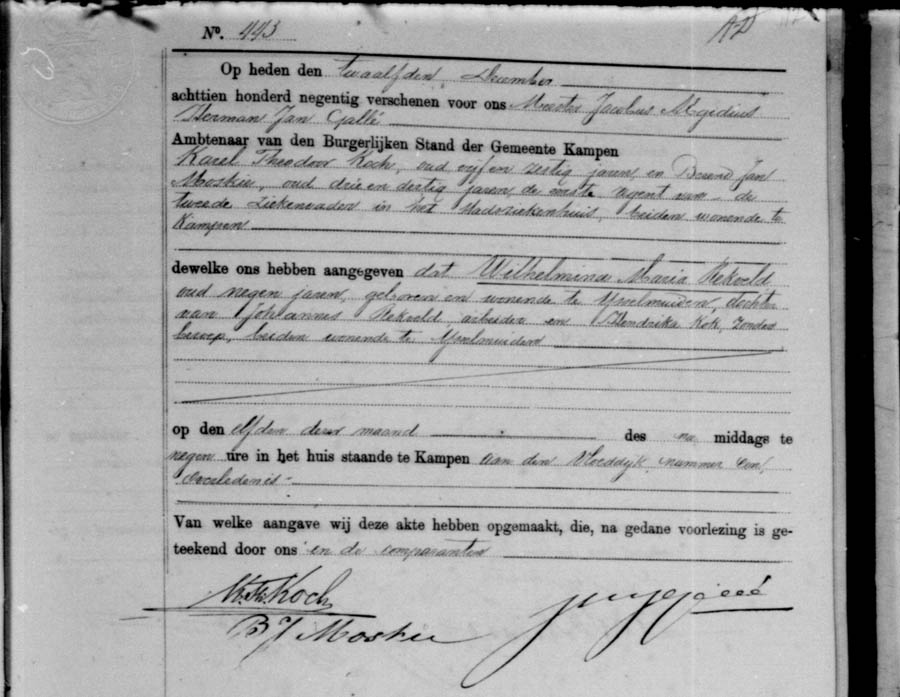 No. 443
Op heden den twaalfden December
achttien honderd negentig verschenen voor ons Meester Jacobus Aegidius
Herman Jan Gallé
Ambtenaar van den Burgerlijken Stand der Gemeente Kampen
Karel Theodoor Koch, oud vijf en zestig jaren en Berend Jan
Moskie, oud drie en dertig jaren de eerste agent van de
tweede ziekenvader in het Stadsziekenhuis, beiden wonende te
Kampen
dewelke ons hebben aangegeven dat Wilhelmina Maria Rekveld
oud negen jaren, geboren en wonende te Ysselmuiden, dochter
van Johannes Rekveld, arbeider en Hendrika Kok, zonder
beroep, beiden wonende te Ysselmuiden
op den elfden dezer maand des na middags te
negen ure in het huis staande te Kampen aan den Vloeddyk nummer een,
overleden is
Van welke aangave wij deze akte hebben opgemaakt, die, na gedane voorlezing is ge-
teekend door ons en de comparanten
Koch
B J Moskie